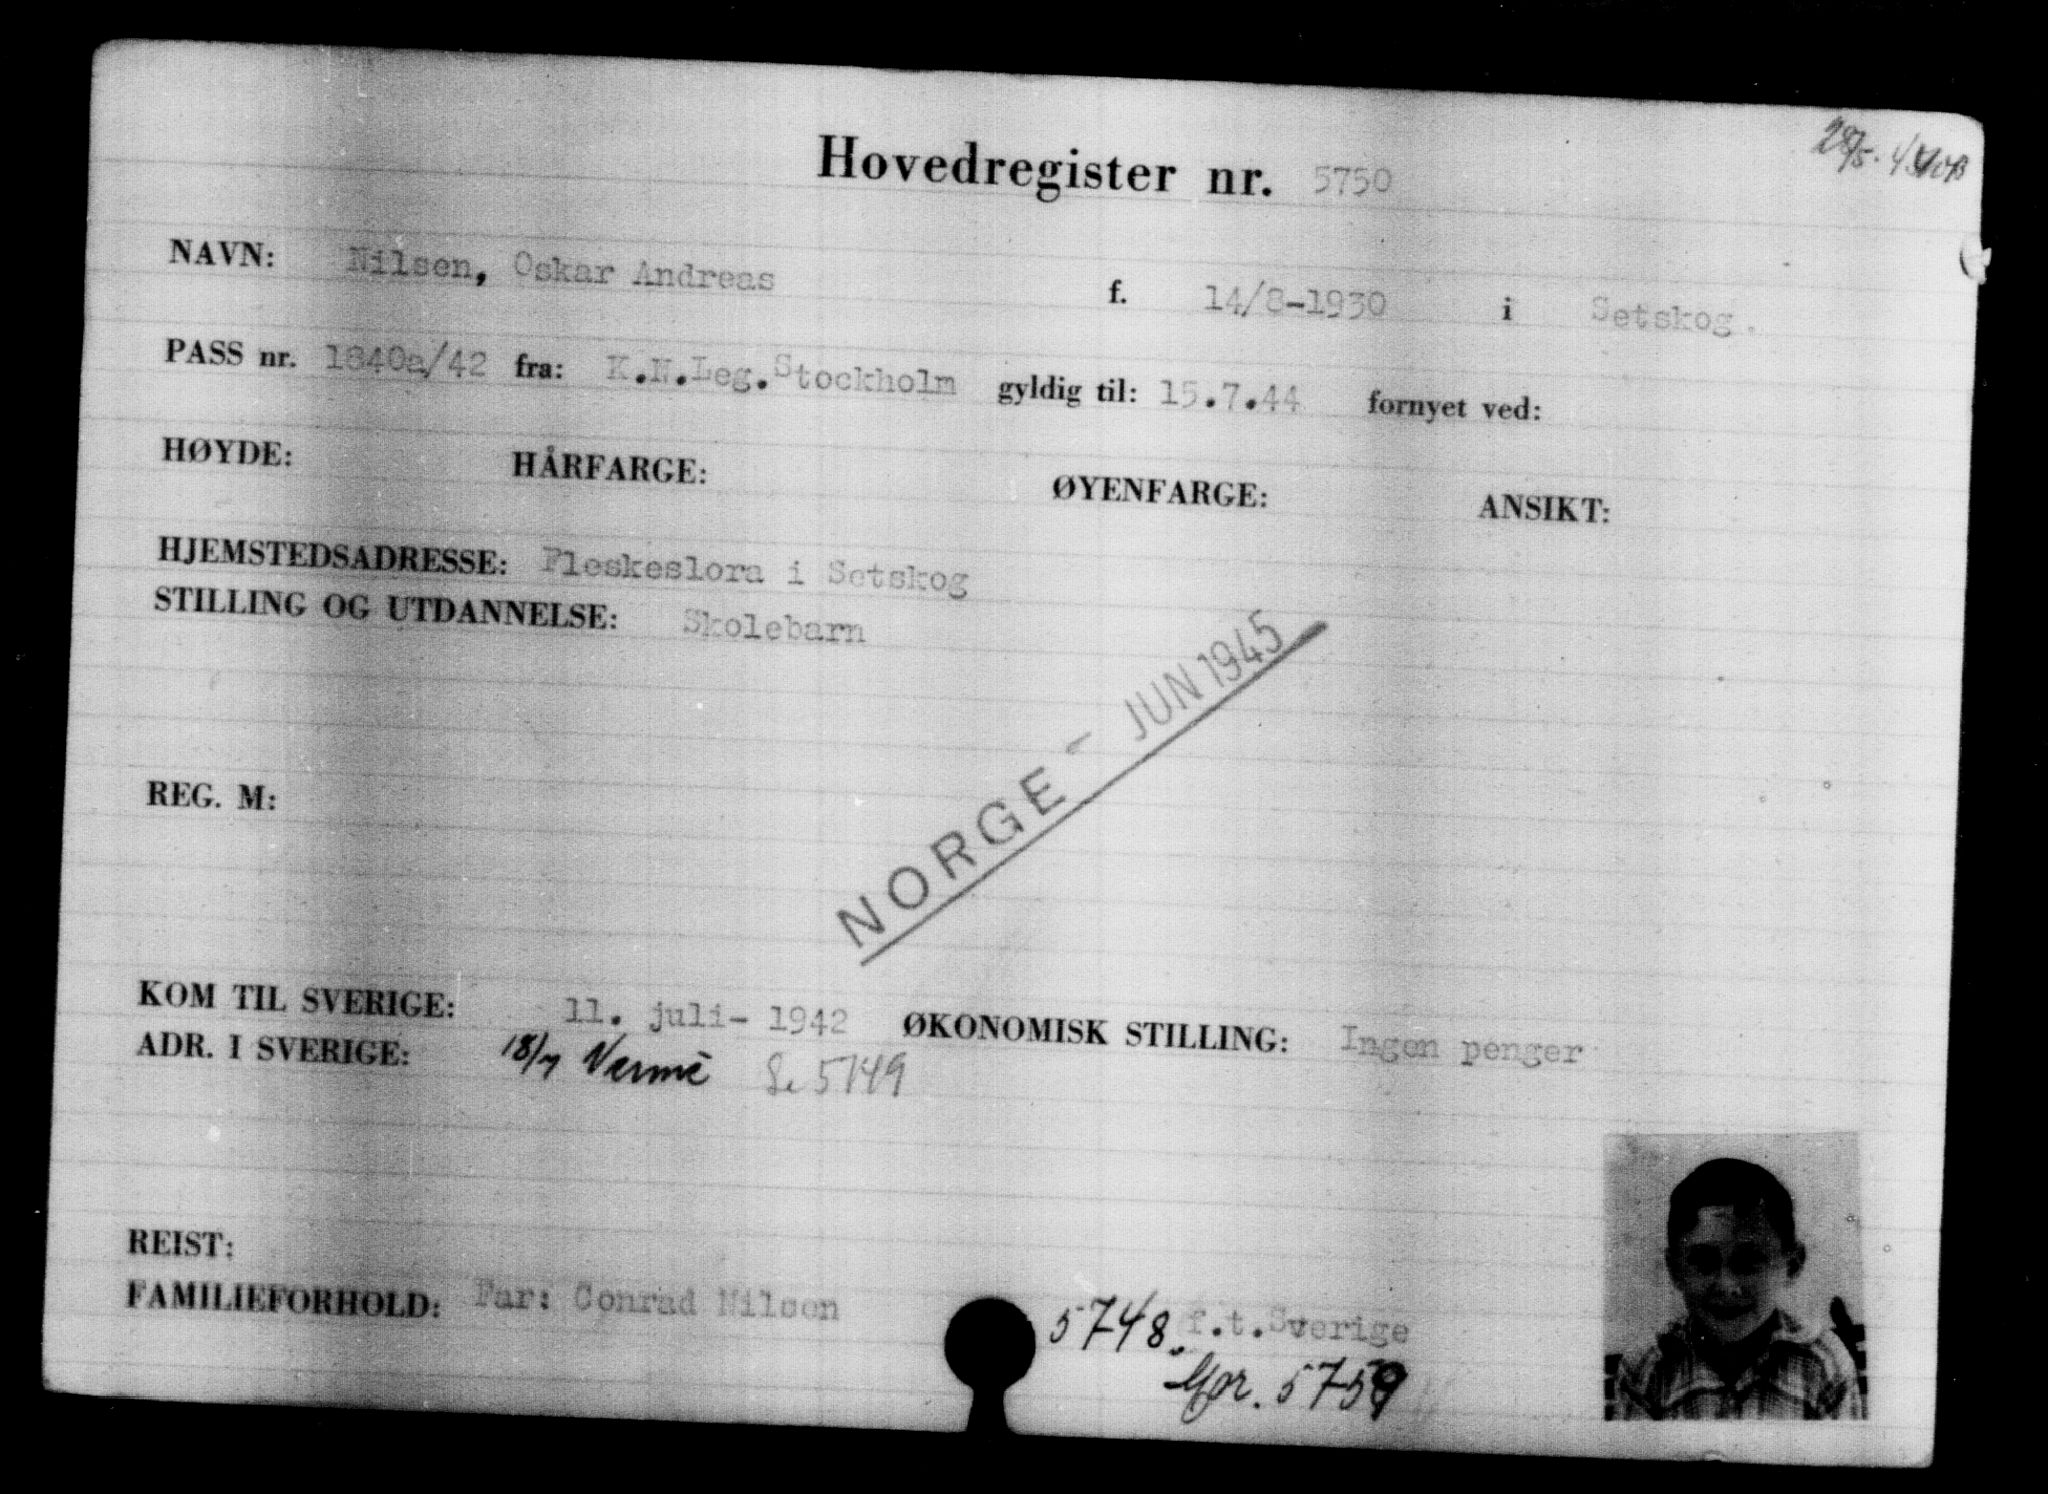 28/5. 45
Hovedregister nr. 5750
NAVN: Nilsen, Oskar Andreas f. 14/8-1930 i Setskog.
PASS nr. 1840a/42 fra: K.N.Leg.Stockholm gyldig til: 15.7.44 fornyet ved:
HØYDE: HÅRFARGE: ØYENFARGE: ANSIKT:
HJEMSTEDSADRESSE: Fleskeslora i Setskog
STILLING OG UTDANNELSE: Skolebarn
NORGE - JUN 1945
REG. M:
KOM TIL SVERIGE: 11. juli- 1942 ØKONOMISK STILLING: Ingen penger
ADR. I SVERIGE: 18/7 Se 5749
REIST:
FAMILIEFORHOLD: Far: Conrad Nilsen 5748. f.t.Sverige
Mor. 5759